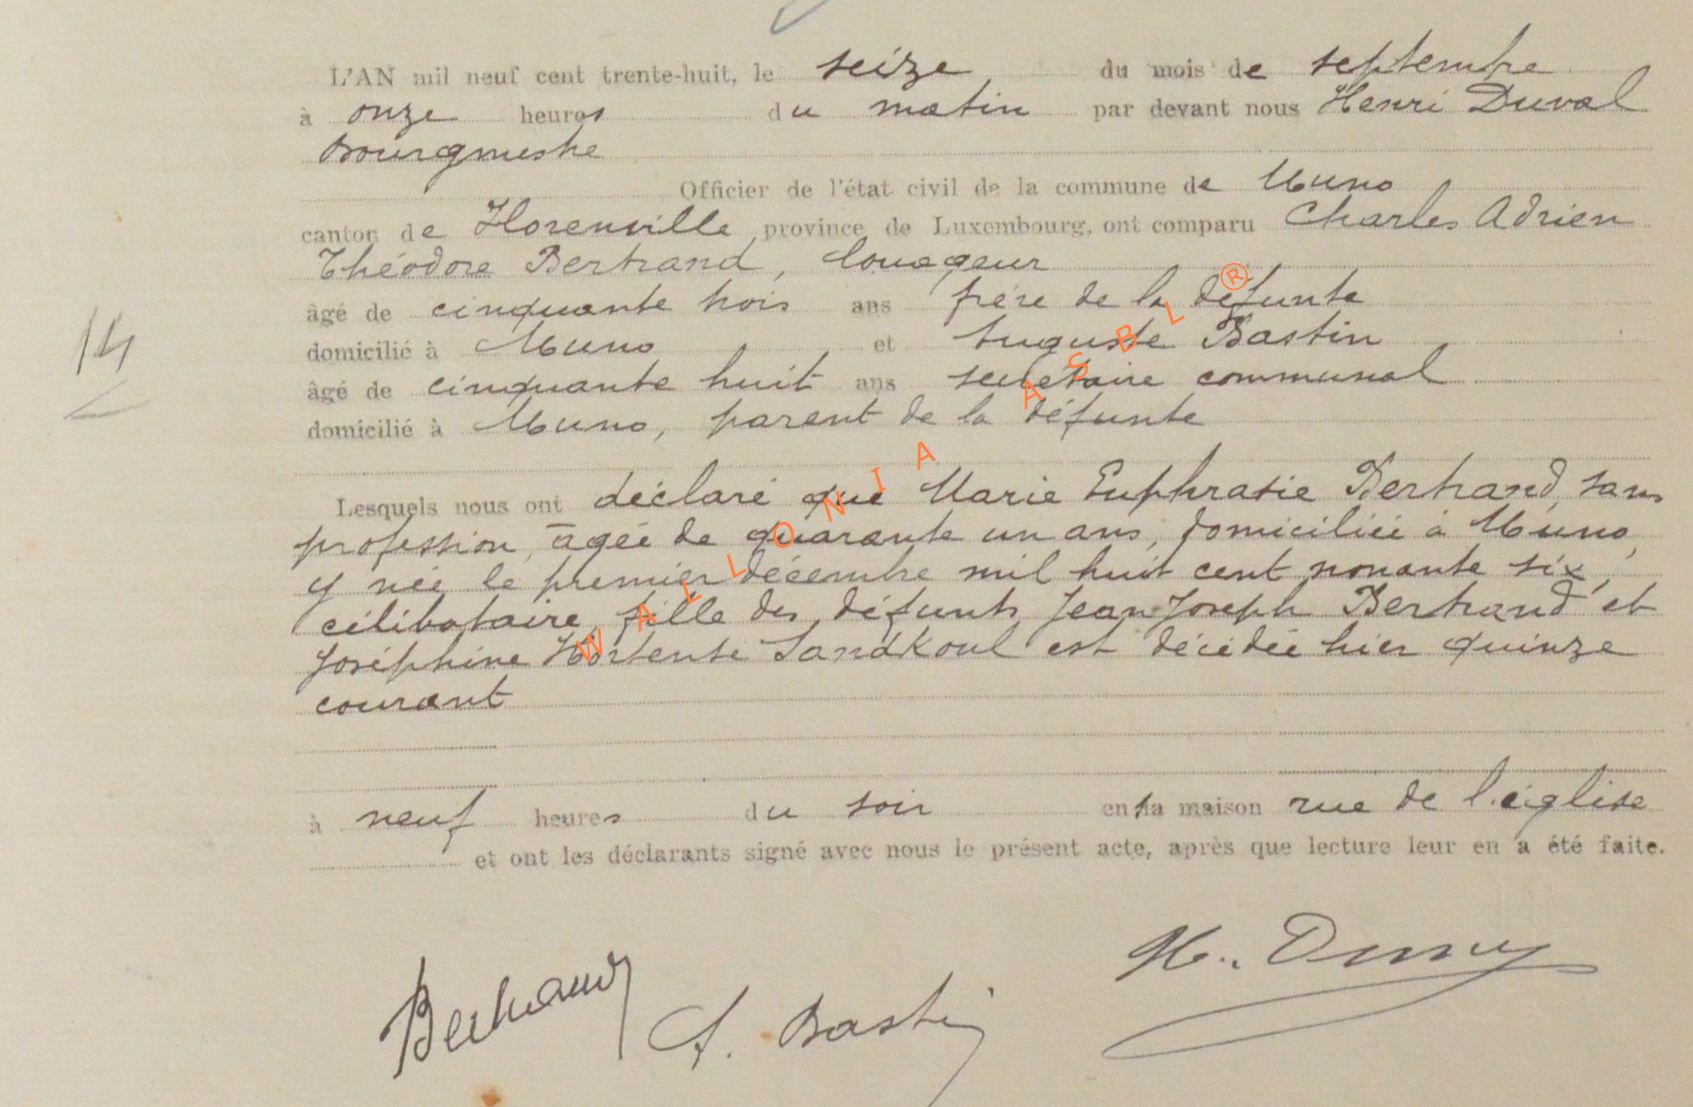 L'AN mil neuf cent trente-huit, le seize du mois de septembre
à onze heures du matin par devant nous Henri Duval
Bourgmestre
Officier de l'état civil de la commune de Muno
canton de Florenville province de Luxembourg, ont comparu Charles Adrien
Théodore Bertrand, louageur
âgé de cinquante trois ans frère de la défunte
domicilié à Muno et Auguste Bastin
âgé de cinquante huit ans secrétaire communal
domicilié à Muno, parent de la défunte
14
Lesquels nous ont déclaré que Marie Euphrasie Bertrand, sans
profession, âgée de quarante un ans, domiciliée à Muno,
y née le premier décembre mil huit cent nonante six,
célibataire, fille des défunts Jean Joseph Bertrand et
Joséphine Hortense Sandkoul est décédée hier quinze
courant
à neuf heures du soir en sa maison rue de l'église
et ont les déclarants signé avec nous le présent acte, après que lecture leur en a été faite.
Bertrand A. Bastin H. Duval
WALLONIA ASBL ®